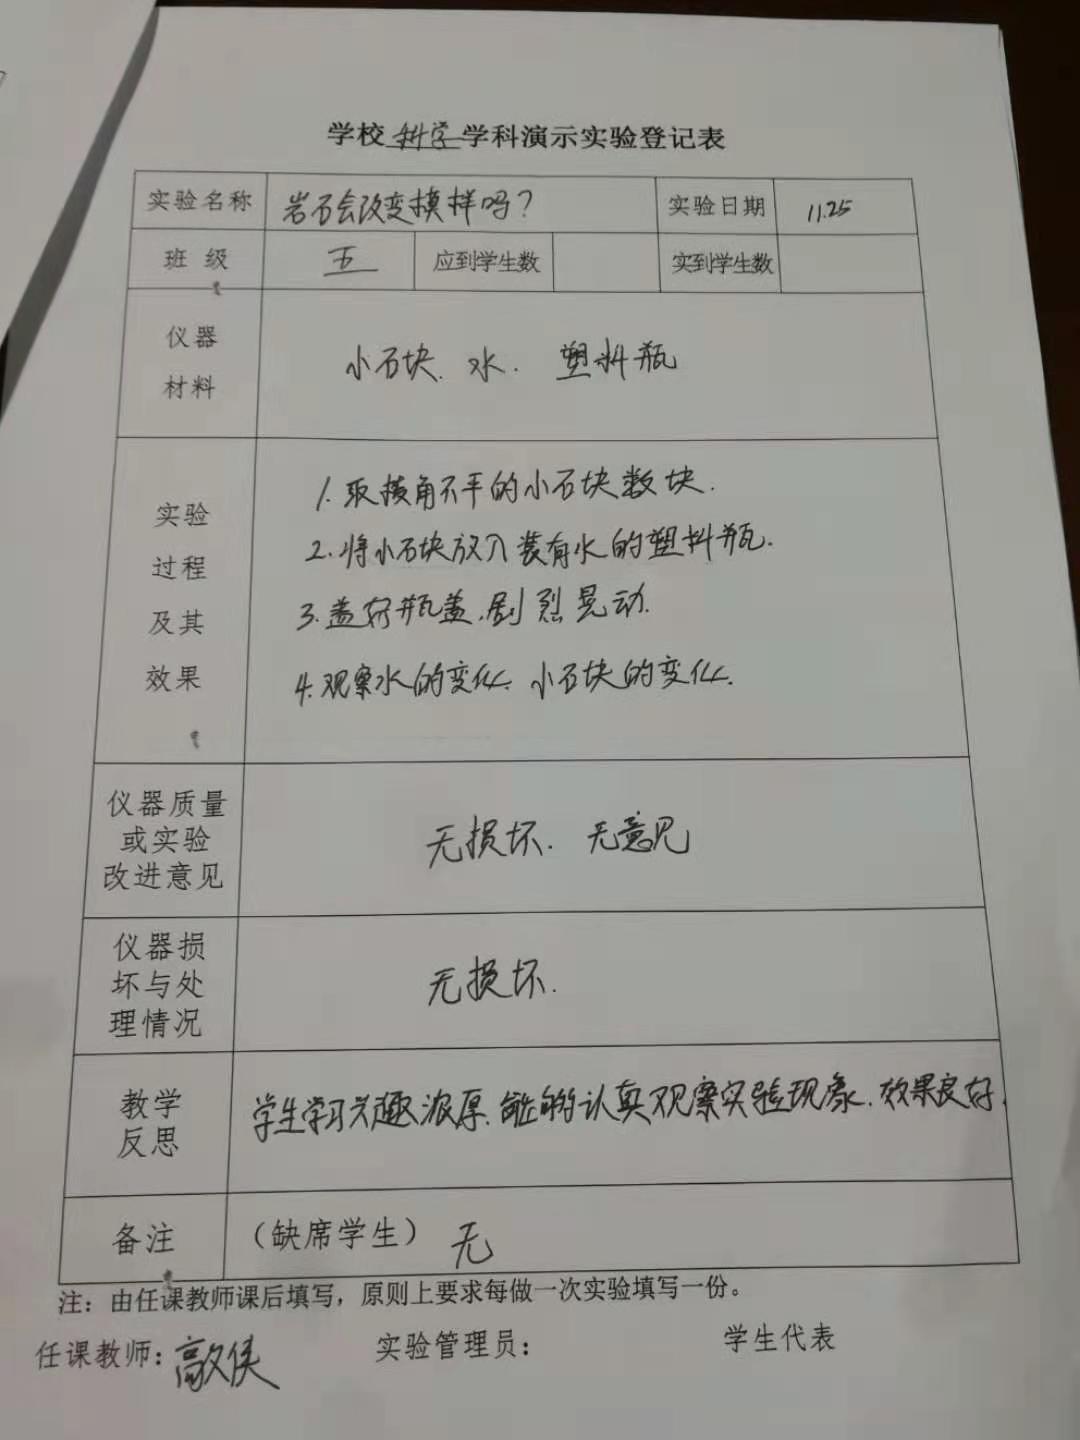 学校科学学科演示实验登记表
实验名称 岩石会改变模样吗？ 实验日期 11.25
班 级 五 应到学生数 实到学生数
仪器
材料
小石块、水、塑料瓶
实验
过程
及其
效果
1.取棱角不平的小石块数块.
2.将小石块放入装有水的塑料瓶.
3.盖好瓶盖,剧烈晃动.
4.观察水的变化、小石块的变化.
仪器质量
或实验
改进意见
无损坏. 无意见
仪器损
坏与处
理情况
无损坏.
教学
反思
学生学习兴趣浓厚,能够认真观察实验现象.效果良好.
备注 （缺席学生） 无
注：由任课教师课后填写，原则上要求每做一次实验填写一份。
任课教师： 实验管理员： 学生代表